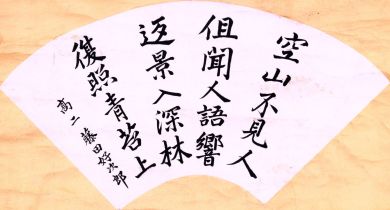 空山不見人
但聞人語響
返景入深林
復照青苔上
高二 藤田好次郎